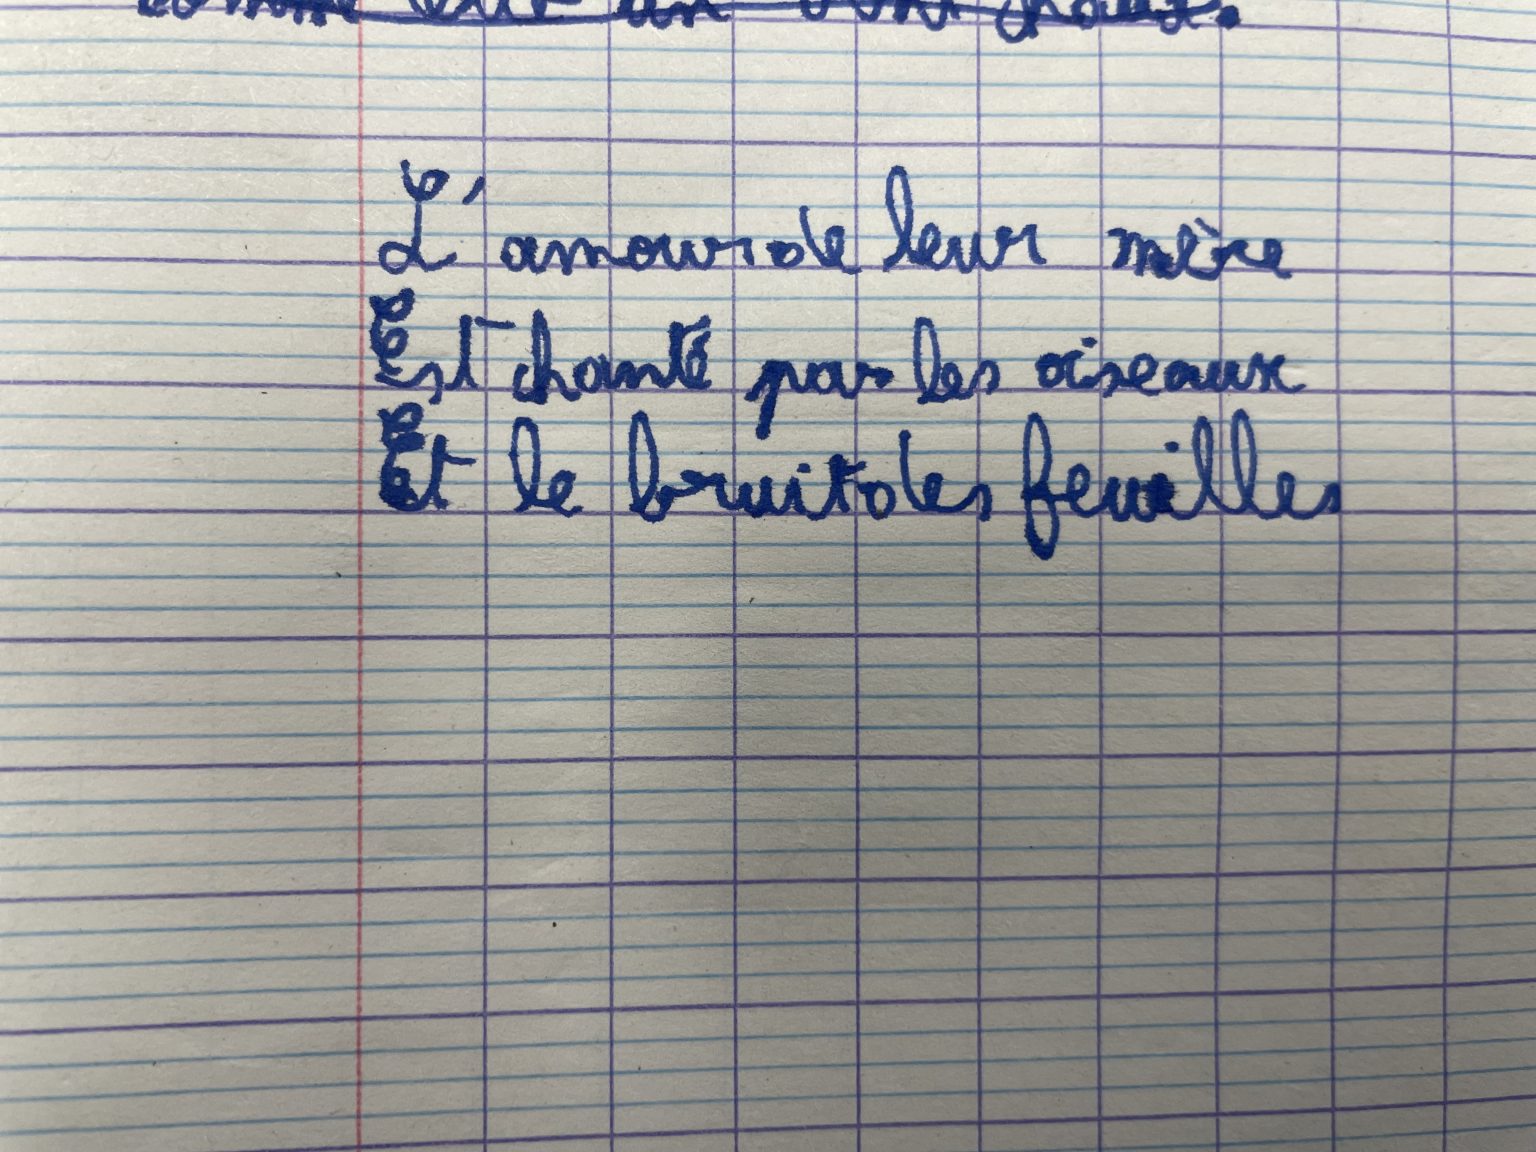 un
L'amour de leur mère
Est chanté par les oiseaux
Et le bruit des feuilles